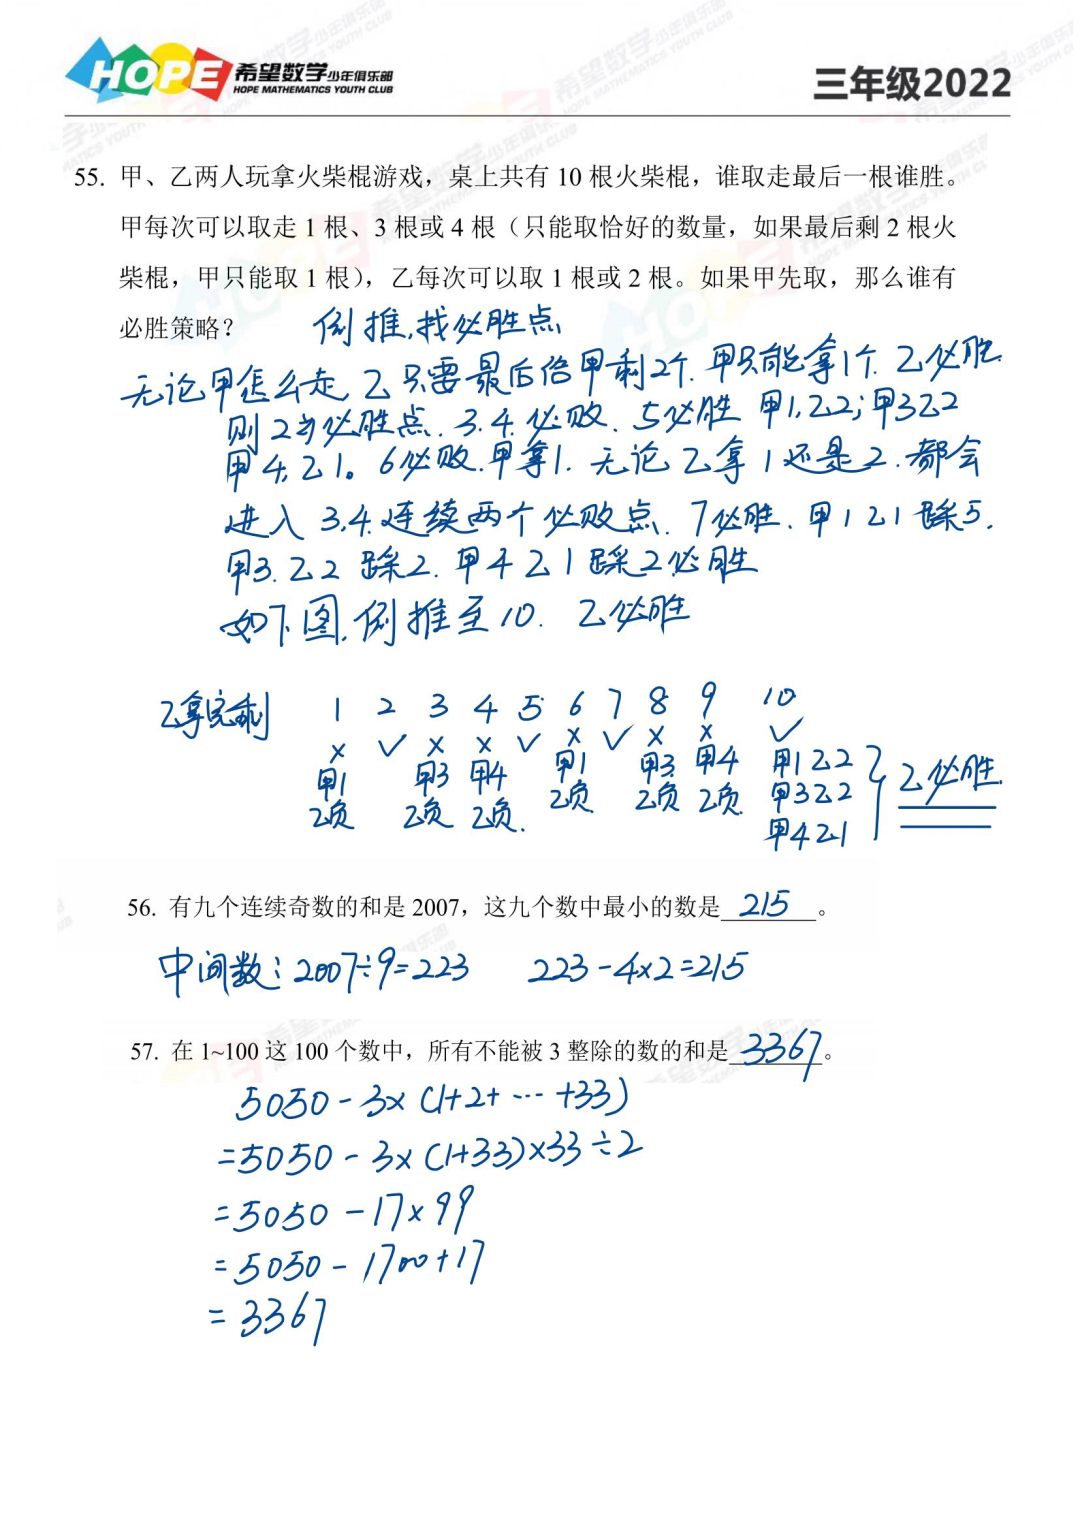 HOPE 希望数学少年俱乐部
HOPE MATHEMATICS YOUTH CLUB
三年级2022
55. 甲、乙两人玩拿火柴棍游戏，桌上共有 10 根火柴棍，谁取走最后一根谁胜。
甲每次可以取走 1 根、3 根或 4 根（只能取恰好的数量，如果最后剩 2 根火
柴棍，甲只能取 1 根），乙每次可以取 1 根或 2 根。如果甲先取，那么谁有
必胜策略？ 倒推,找必胜点
无论甲怎么走,乙只要最后给甲剩2个.甲只能拿1个.乙必胜.
则2为必胜点.3.4.必败.5必胜 甲1,乙2;甲3乙2
甲4,乙1。6必败.甲拿1.无论乙拿1还是2.都会
进入3,4.连续两个必败点.7必胜.甲1乙1踩5.
甲3.乙2 踩2.甲4乙1踩2必胜
如下图,倒推至10. 乙必胜
乙拿完剩 1 2 3 4 5 6 7 8 9 10
× ✓ × × ✓ × ✓ × × ✓
甲1 甲3 甲4 甲1 甲3 甲4 甲1乙2
乙负 乙负 乙负. 乙负 乙负 乙负 甲3乙2 乙必胜.
甲4乙1
56. 有九个连续奇数的和是 2007，这九个数中最小的数是 215 。
中间数：2007÷9=223 223-4×2=215
57. 在 1~100 这 100 个数中，所有不能被 3 整除的数的和是 3367 。
5050-3×(1+2+…+33)
=5050-3×(1+33)×33÷2
=5050-17×99
=5050-1700+17
=3367